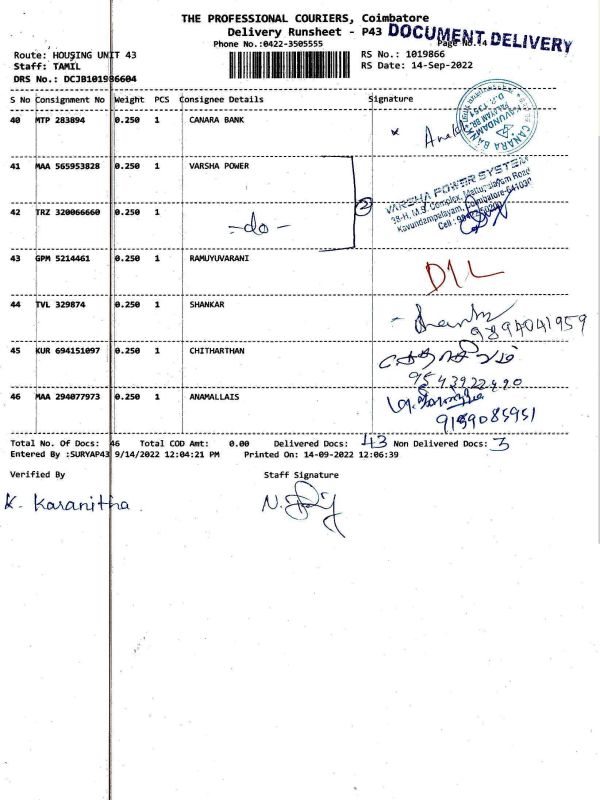 THE PROFESSIONAL COURIERS, Coimbatore
Delivery Runsheet - P43 DOCUMENT DELIVERY
Phone No.:0422-3505555 Page No.:4
Route: HOUSING UNIT 43 RS No.: 1019866
Staff: TAMIL RS Date: 14-Sep-2022
DRS No.: DCJB101986604
S No Consignment No Weight PCS Consignee Details Signature
40 MTP 283894 0.250 1 CANARA BANK
CANARA BANK
41 MAA 565953828 0.250 1 VARSHA POWER
VARSHA POWER SYSTEM
38-H, M.S. Complex, Road
Kavundampalayam, Coimbatore-641030
Cell :
2
42 TRZ 320066660 0.250 1 -do-
43 GPM 5214461 0.250 1 RAMUYUVARANI D/L
44 TVL 329874 0.250 1 SHANKAR
9894041959
45 KUR 694151097 0.250 1 CHITHARTHAN
46 MAA 294077973 0.250 1 ANAMALLAIS
Total No. Of Docs: 46 Total COD Amt: 0.00 Delivered Docs: 43 Non Delivered Docs: 3
Entered By :SURYAP43 9/14/2022 12:04:21 PM Printed On: 14-09-2022 12:06:39
Verified By Staff Signature
K. Karanitha